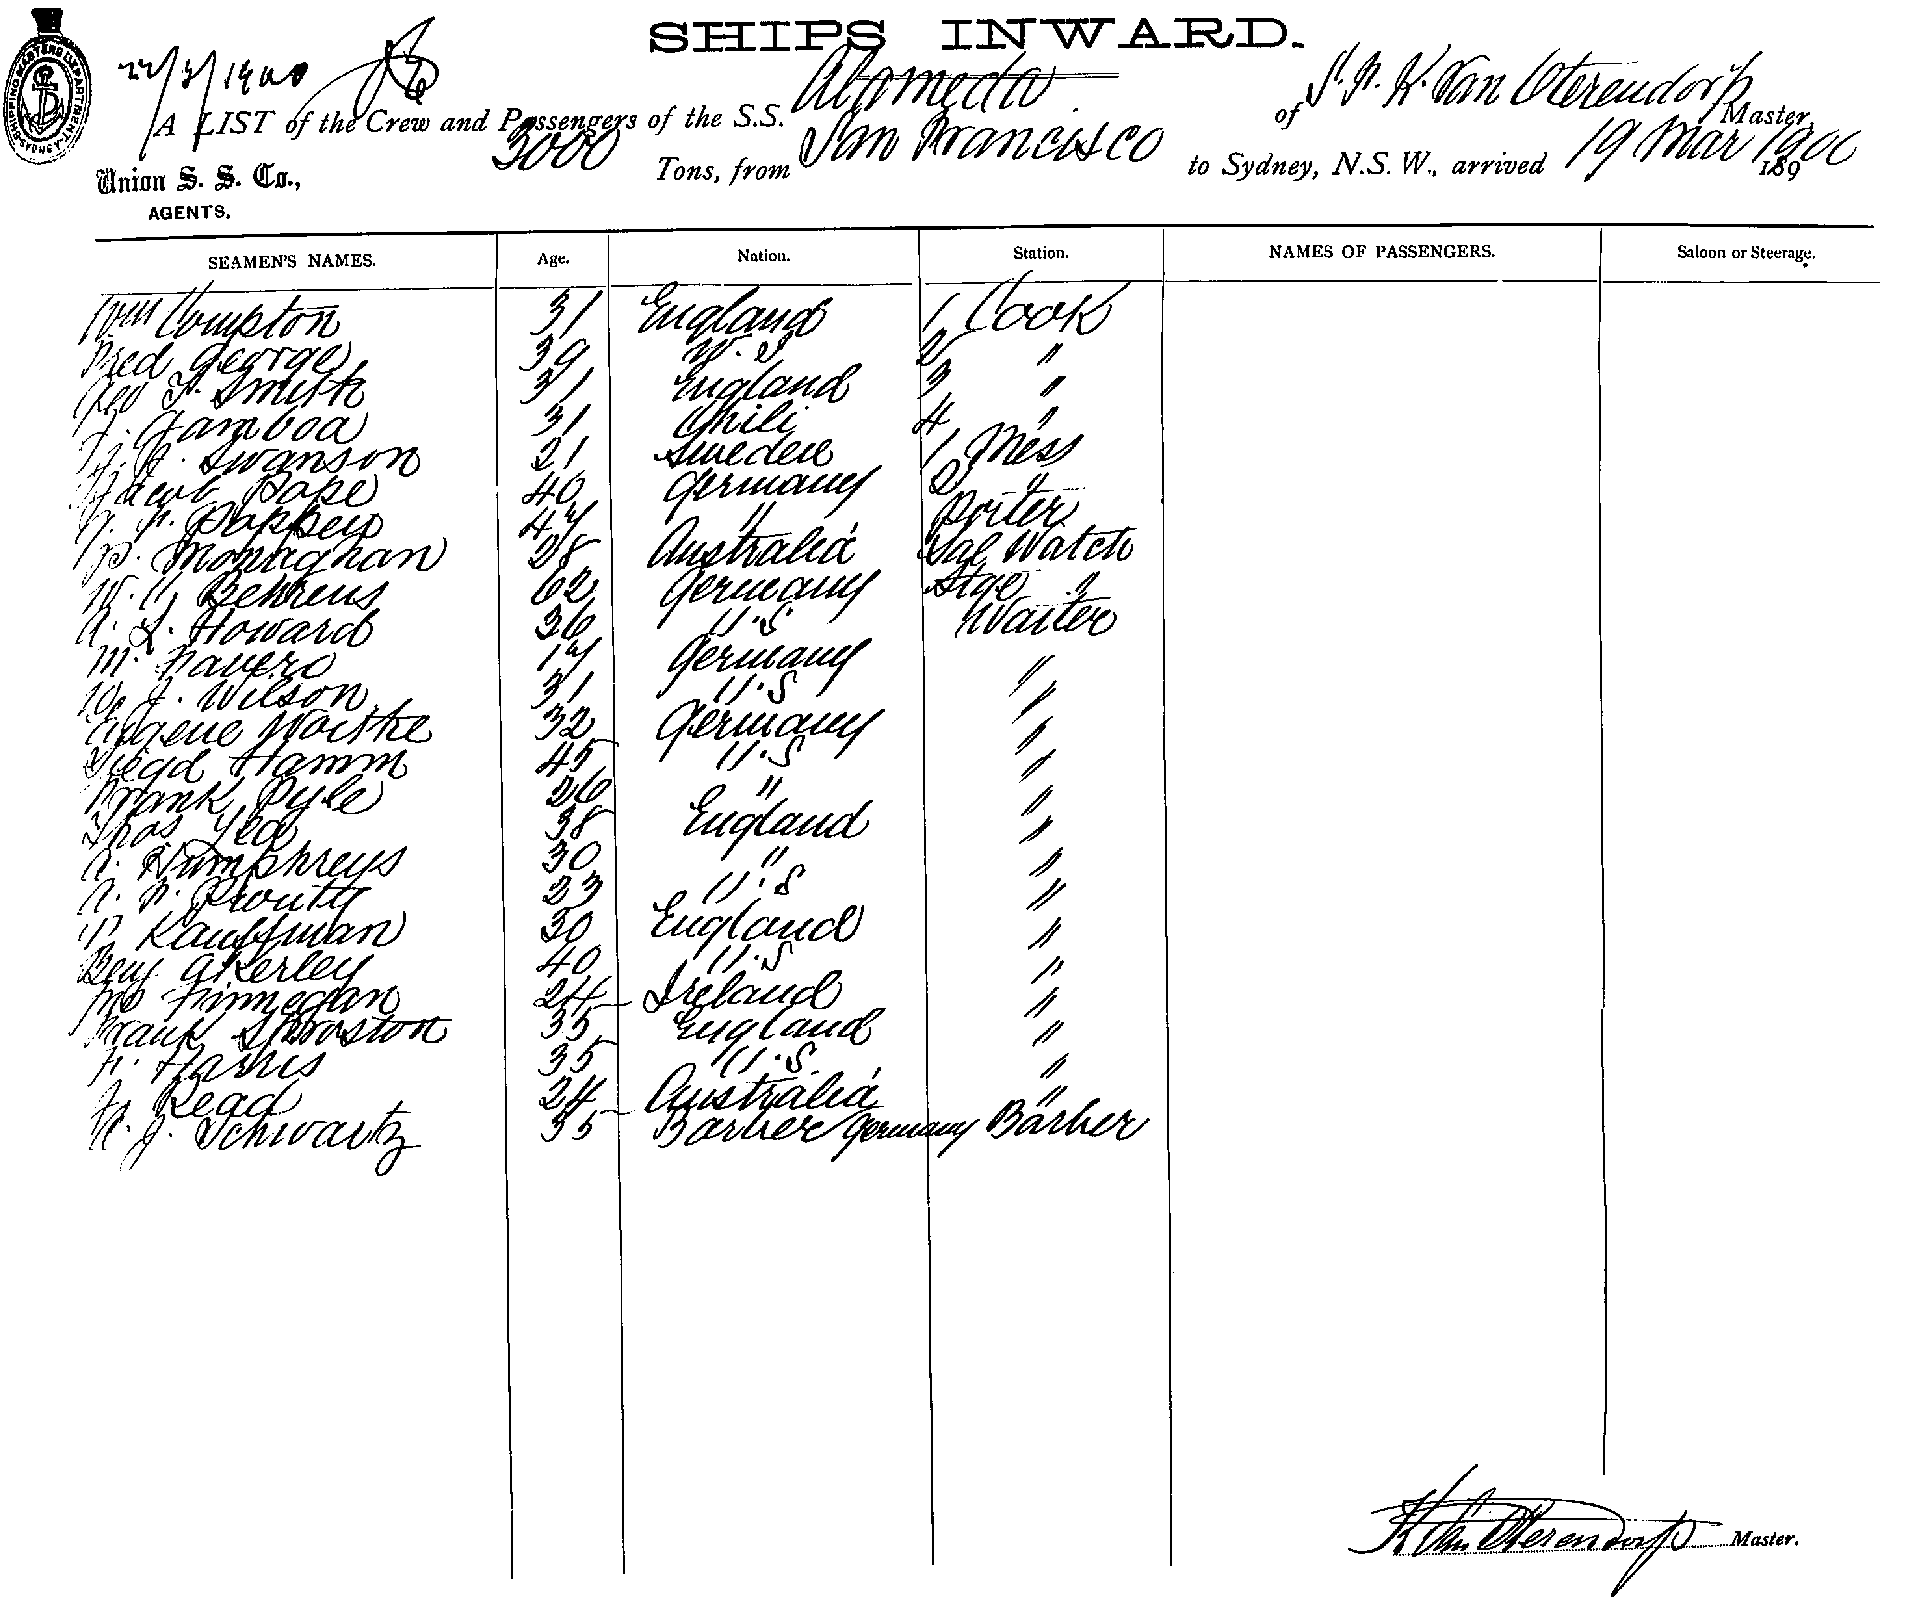 SHIPS INWARD.
SHIPPING MASTERS DEPARTMENT SYDNEY
22/3/1900
A LIST of the Crew and Passengers of the S.S. Alameda of Van Oterendorp Master,
3000 Tons, from San Francisco to Sydney, N.S.W., arrived 19 Mar 1900 189
Union S. S. Co.,
AGENTS.
SEAMEN'S NAMES. Age. Nation. Station. NAMES OF PASSENGERS. Saloon or Steerage.
Wm Compton 31 England 1 Cook
Fred George 39 W. I 2 "
Geo F. Smith 31 England 3 "
J. Gamboa 31 Chili 4 "
Swanson 21 Sweden 1 Mess
Jacob Pape 40 Germany 2 "
Pappen 47 " Porter
P. Monaghan 28 Australia Sal Watch
W. C. Behrens 62 Germany Stge "
A. L. Howard 36 U.S Waiter
M. 17 Germany "
W. J. Wilson 31 U.S "
Eugene Woithe 32 Germany "
Siegd Hamm 45 U.S "
Frank Pyle 26 " "
Thos Yeo 38 England "
A. Humphreys 30 " "
A. N. Prouty 23 U.S "
P. Kauffman 30 England "
Benj Akerley 40 U.S "
Finnegan 24 Ireland "
Frank Sproston 35 England "
F. Harris 35 U.S "
J. Read 24 Australia "
A. J. Schwartz 35 Barber Germany Barber
K Van Oterendorp Master.